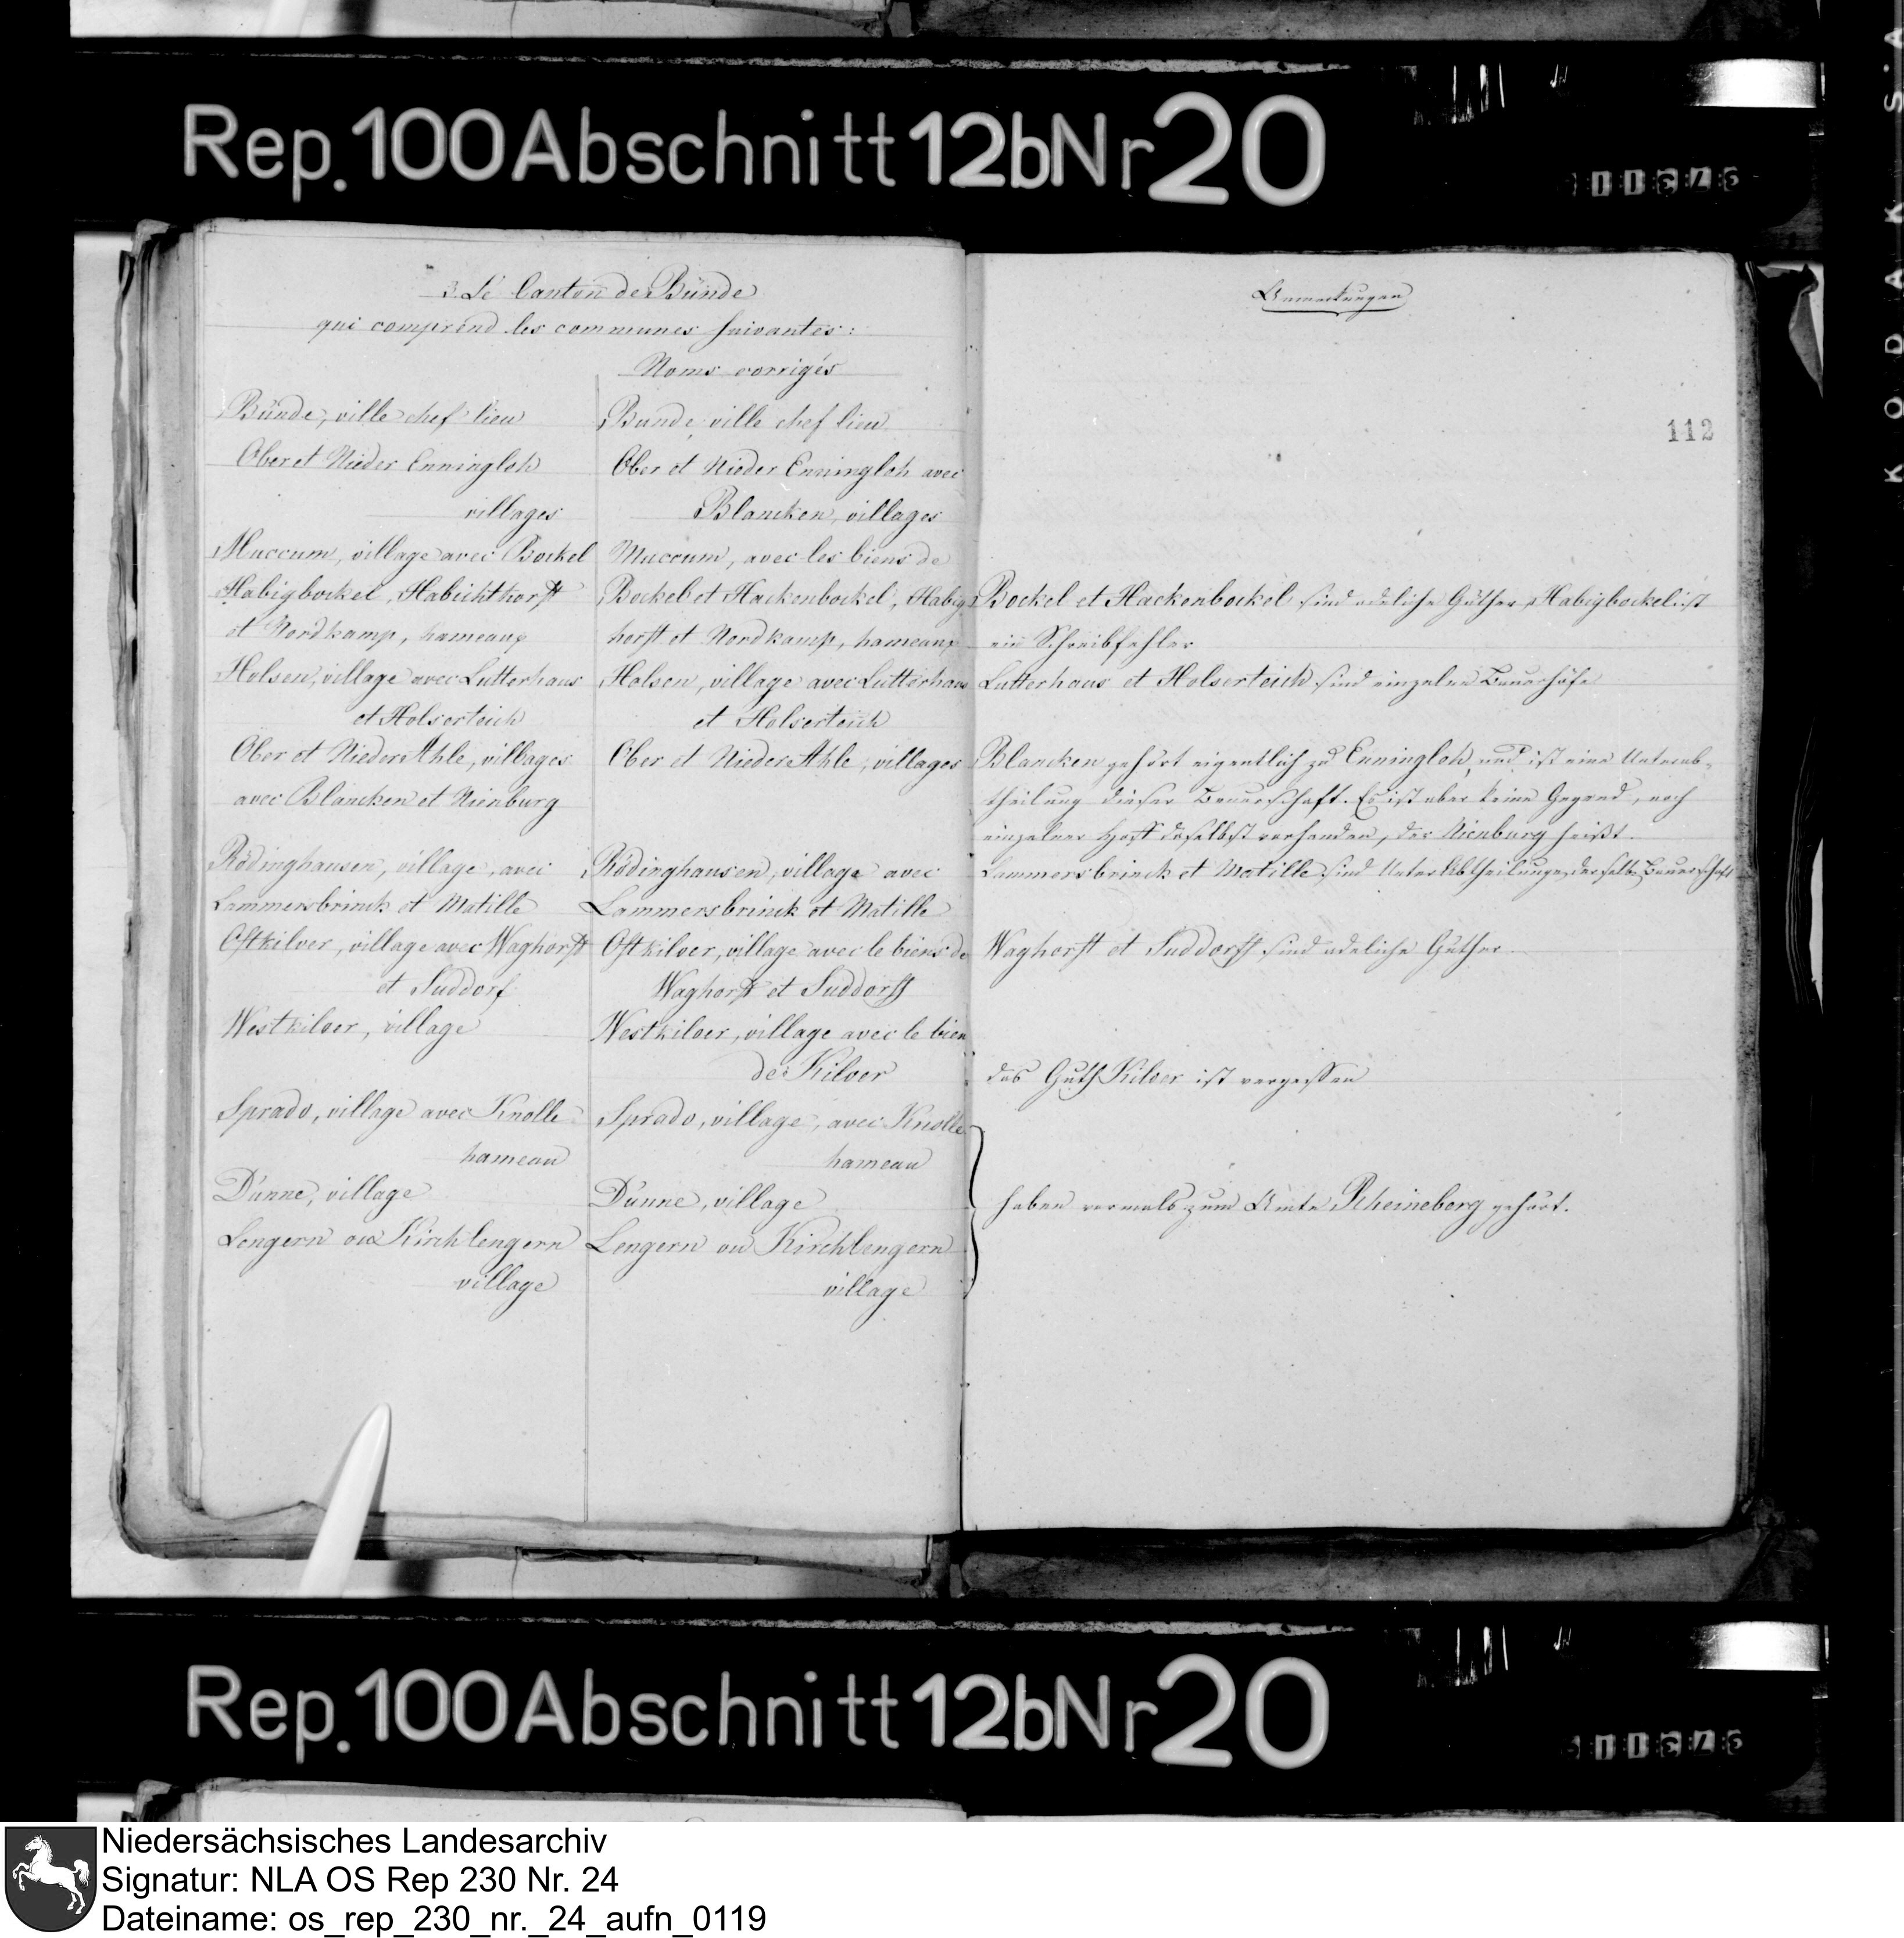 Rep. 100 Abschnitt 12b Nr 20
3. Le Canton de Bünde
qui comprend les communes suivantes:
Noms corrigés
Bünde, ville chef lieu
Ober et Nieder Enningloh
villages
Muccum, village avec Bockel
Habigbockel, Habichthorst
et Nordkamp, hameaux
Holsen, village avec Lutterhaus
et Holserteich
Ober et Nieder Ahle, villages
avec Blancken et Nienburg
Rödinghausen, village, avec
Lammersbrinck et Matille
Ostkilver, village avec Waghorst
et Suddorf
Westkilver, village
Sprado, village avec Knolle
hameau
Dünne, village
Lengern ou Kirchlengern
village
Bunde, ville chef lieu
Ober et Nieder Enningloh avec
Blancken, villages
Muccum, avec les biens de
Bockel et Hackenbockel, Habig
horst et Nordkamp, hameaux
Holsen, village avec Lutterhaus
et Holserteich
Ober et Nieder Ahle, villages
Rödinghausen, village avec
Lammersbrinck et Matille
Ostkilver, village avec le biens de
Waghorst et Suddorff
Westkilver, village avec le bien
de Kilver
Sprado, village, avec Knolle
hameau
Dünne, village
Lengern ou Kirchlengern
village
Anmerkungen
112
Bockel et Hackenbockel sind adeliche Güther, Habigbockel ist
ein Schreibfehler
Lutterhaus et Holserteich sind einzelne Bauerhöfe
Blancken gehört eigentlich zu Enningloh, und ist eine Unterab-
theilung dieser Bauerschaft. Es ist aber keine Gegend, noch
einzelner Hoff daselbst vorhanden, der Nienburg heißt.
Lammersbrinck et Matille sind Unter Abtheilungen derselben Bauerschaft
Waghorst et Suddorff sind adeliche Güther
das Guth Kilver ist vergessen
haben vormals zum Amte Rheineberg gehört.
Rep. 100 Abschnitt 12b Nr 20
KODAK SA
Niedersächsisches Landesarchiv
Signatur: NLA OS Rep 230 Nr. 24
Dateiname: os_rep_230_nr._24_aufn_0119